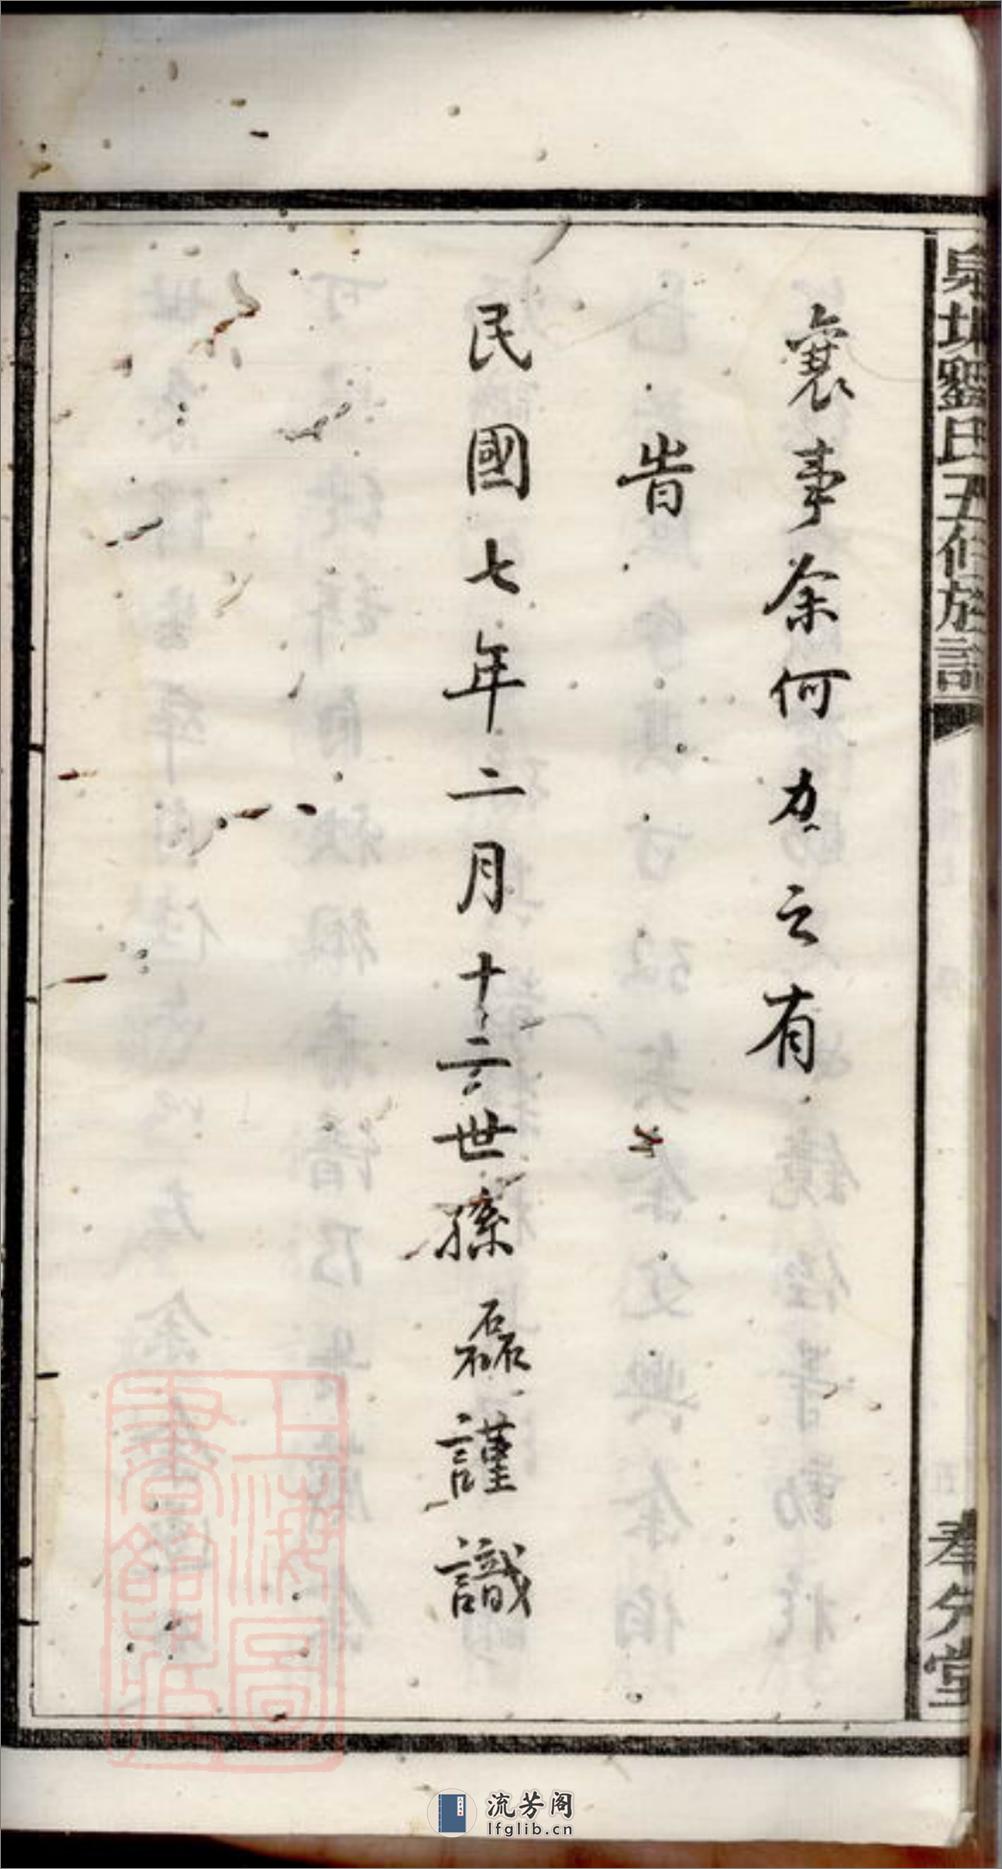 劉氏五修族譜
奉先堂
襄事余何力之有
旹
民國七年二月十二世孫磊謹識
上海圖書館藏
流芳阁
lfglib.cn